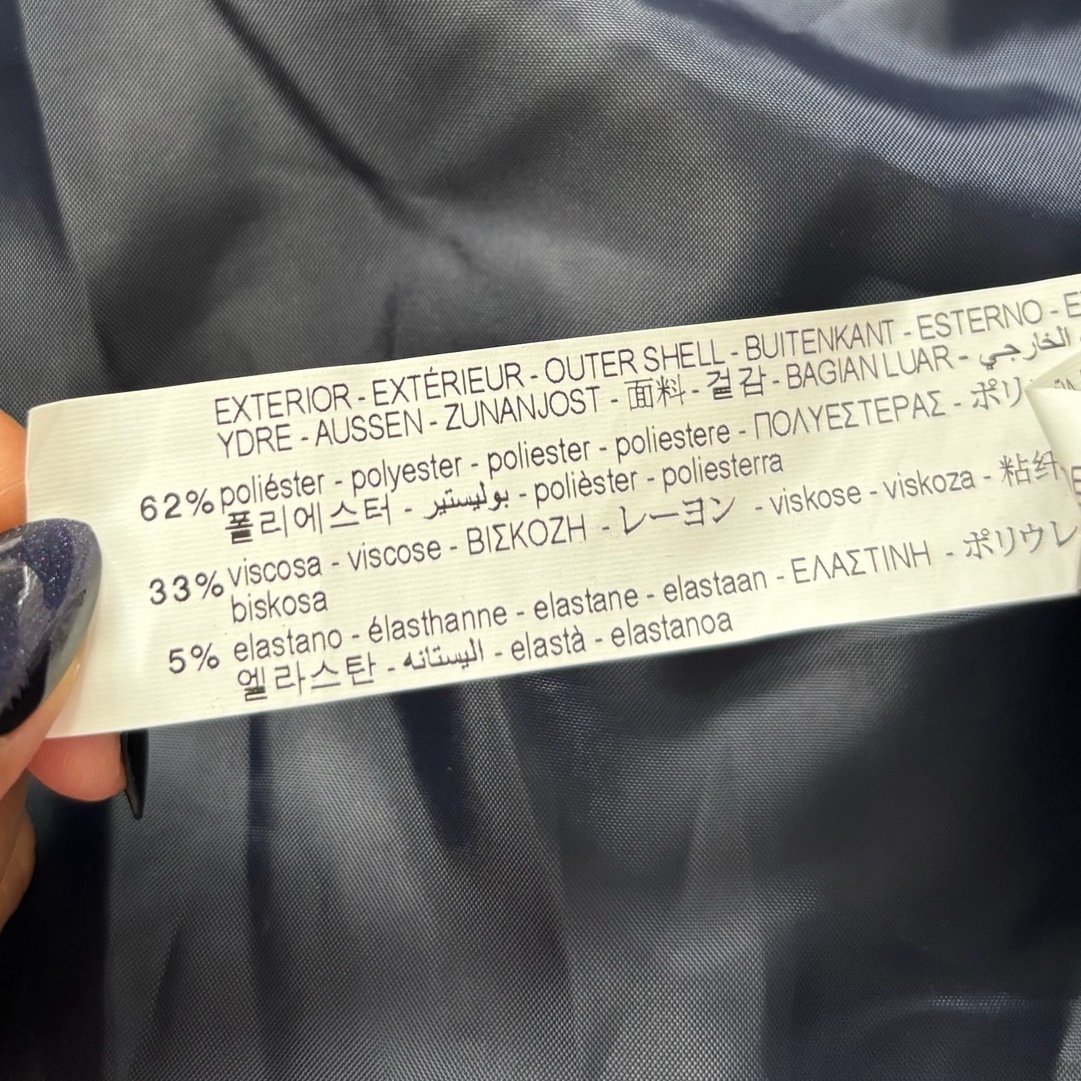 EXTERIOR - EXTÉRIEUR - OUTER SHELL - BUITENKANT - ESTERNO -
YDRE - AUSSEN - ZUNANJOST - 面料 - 겉감 - BAGIAN LUAR - الخارجي
62% poliéster - polyester - poliester - poliestere - ΠΟΛΥΕΣΤΕΡΑΣ - ポリ
폴리에스터 - بوليستير - polièster - poliesterra
33% viscosa - viscose - ΒΙΣΚΟΖΗ - レーヨン - viskose - viskoza - 粘纤
biskosa
5% elastano - élasthanne - elastane - elastaan - ΕΛΑΣΤΙΝΗ - ポリウレ
엘라스탄 - اليستانه - elastà - elastanoa